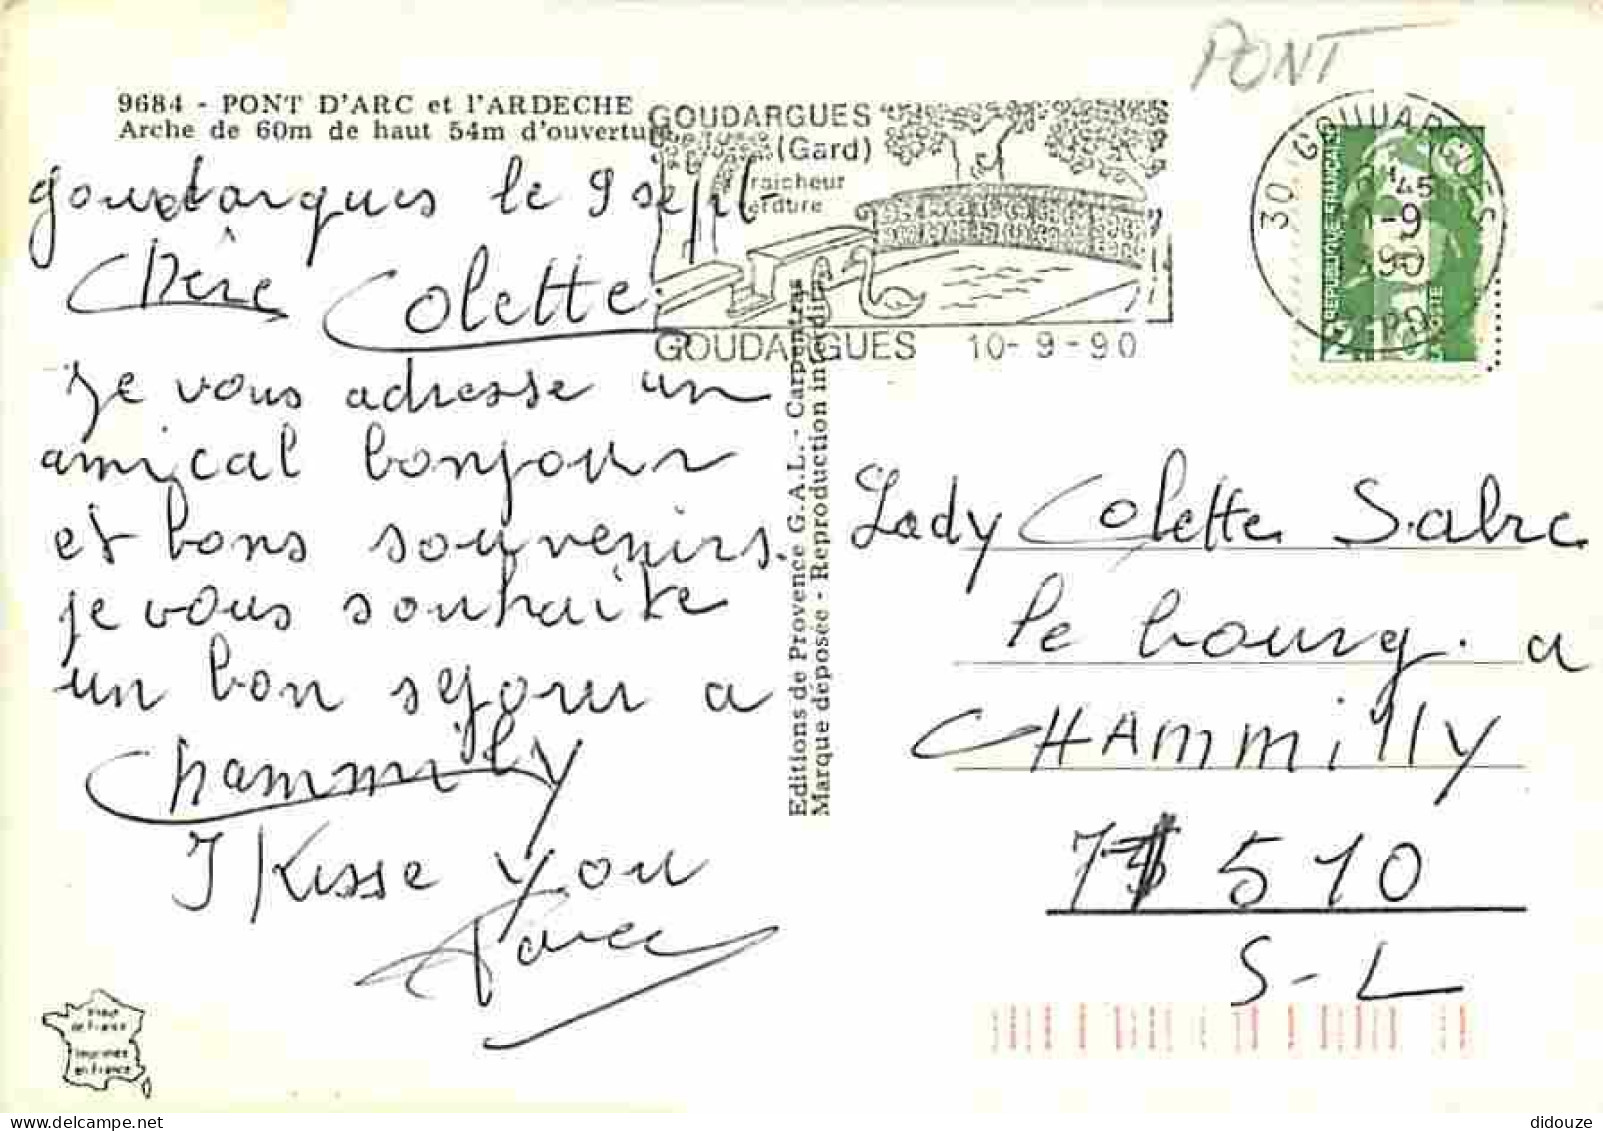 PONT
9684 - PONT D'ARC et l'ARDECHE
Arche de 60m de haut 54m d'ouverture
GOUDARGUES
(Gard)
fraîcheur
verdure
GOUDARGUES 10-9-90
30 GOUDARGUES
45
-9
90
REPUBLIQUE FRANÇAISE
goudargues le 9 sept
Chère Colette.
Je vous adresse un
amical bonjour
et bons souvenirs.
je vous souhaite
un bon séjour a
Chammilly
I Kisse you
Editions de Provence G.A.L. - Carpentras
Marque déposée - Reproduction interdite
Lady Colette Sabre
le bourg. a
CHAmmilly
71 510
S-L
de France
Imprimée
en France
didouze